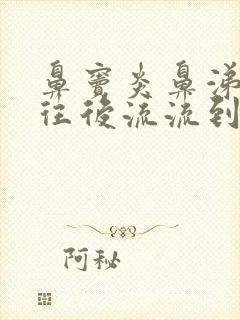 鼻窦炎鼻涕
往后流流到
阿秘